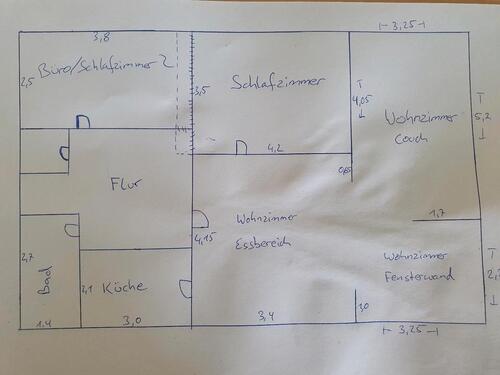 3,25
3,8
Büro/Schlafzimmer 2
2,5
3,5
Schlafzimmer
4,05
Wohnzimmer
Couch
5,2
4,2
Flur
0,65
1,7
Wohnzimmer
Essbereich
4,15
2,7
Wohnzimmer
Fensterwand
Bad
2,1
Küche
3,0
1,4
3,4
3,25